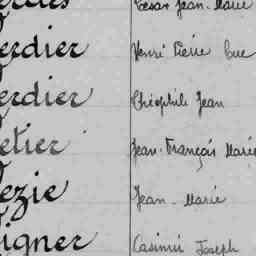 César Jean-Marie
erdier Henri Pierre Luc
erdier Théophile Jean
etier Jean-François Marie
ezie Jean-Marie
igner Casimir Joseph